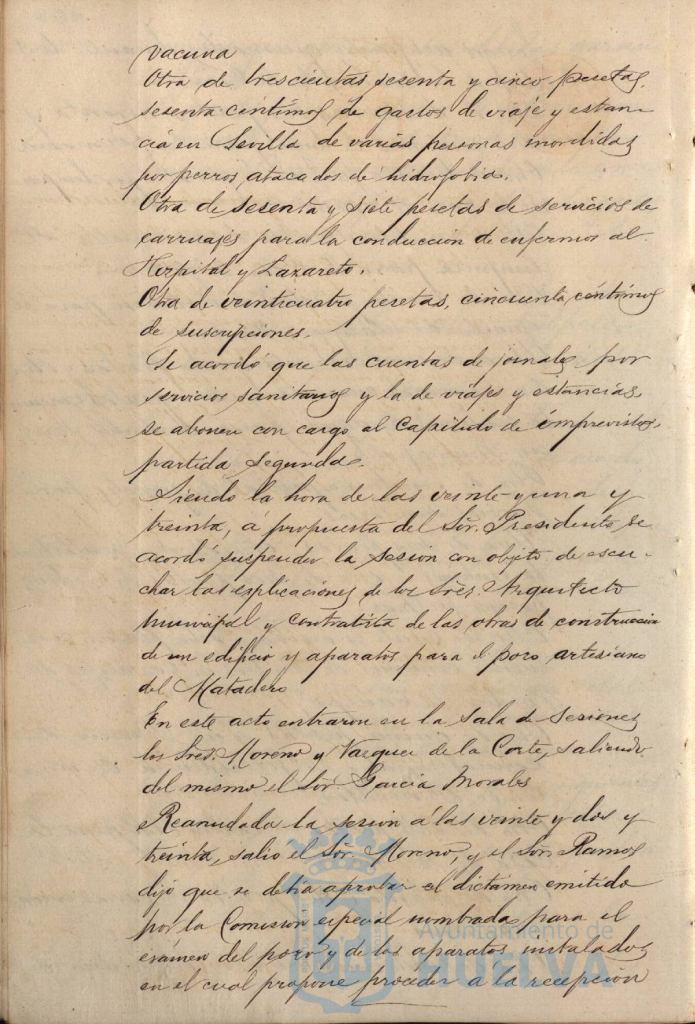 vacuna
Otra de trescientas sesenta y cinco pesetas,
sesenta centimos de gastos de viaje y estan-
cia en Sevilla de varias personas mordidas
por perros atacados de hidrofobia.
Otra de sesenta y siete pesetas de servicios de
carruajes para la conducción de enfermos al
Hospital y Lazareto.
Otra de veinticuatro pesetas, cincuenta céntimos
de suscripciones.
Se acordó que las cuentas de jornales por
servicios sanitarios y la de viajes y estancias,
se abonen con cargo al Capitulo de imprevistos,
partida segunda.
Siendo la hora de las veinte y una y
treinta, á propuesta del Sor. Presidente se
acordó suspender la sesion con objeto de escu-
char las explicaciones de los Sres. Arquitecto
municipal y contratista de las obras de construccion
de un edificio y aparatos para el pozo artesiano
del Matadero
En este acto entraron en la sala de Sesiones
los Sres. Moreno y Vazquez de la Corte, saliendo
del mismo el Sor Garcia Morales
Reanudada la sesion á las veinte y dos y
treinta, salio el Sor. Moreno, y el Sor. Ramos
dijo que se debia aprobar el dictamen emitido
por la Comision especial nombrada para el
exámen del pozo y de los aparatos instalados
en el cual propone proceder a la recepción
Ayuntamiento de
HUELVA